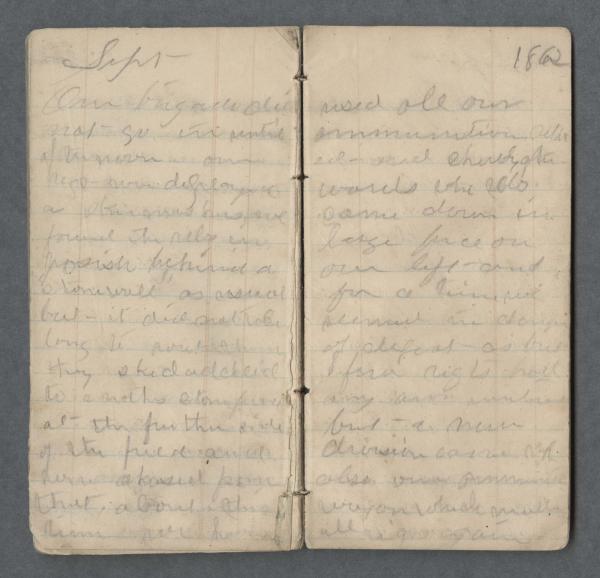 Sept
Our brigade did
not go in until
afternoon our
Reg now deployed
as skirmishers we
found the rebs in
posish behind a
stonewall as usual
but it did not take
long to rout them
they skedaddled
to another stonewall
at the further side
of the field and
here abused
that, about this
time we had
1862
used all our
ammunition
and shortly after
wards the rebs
came down in
large force on
our left and
for a time we
seemed in danger
of defeat as but
four right
but a new
division came up
also our ammunition
wagon which made
all right again